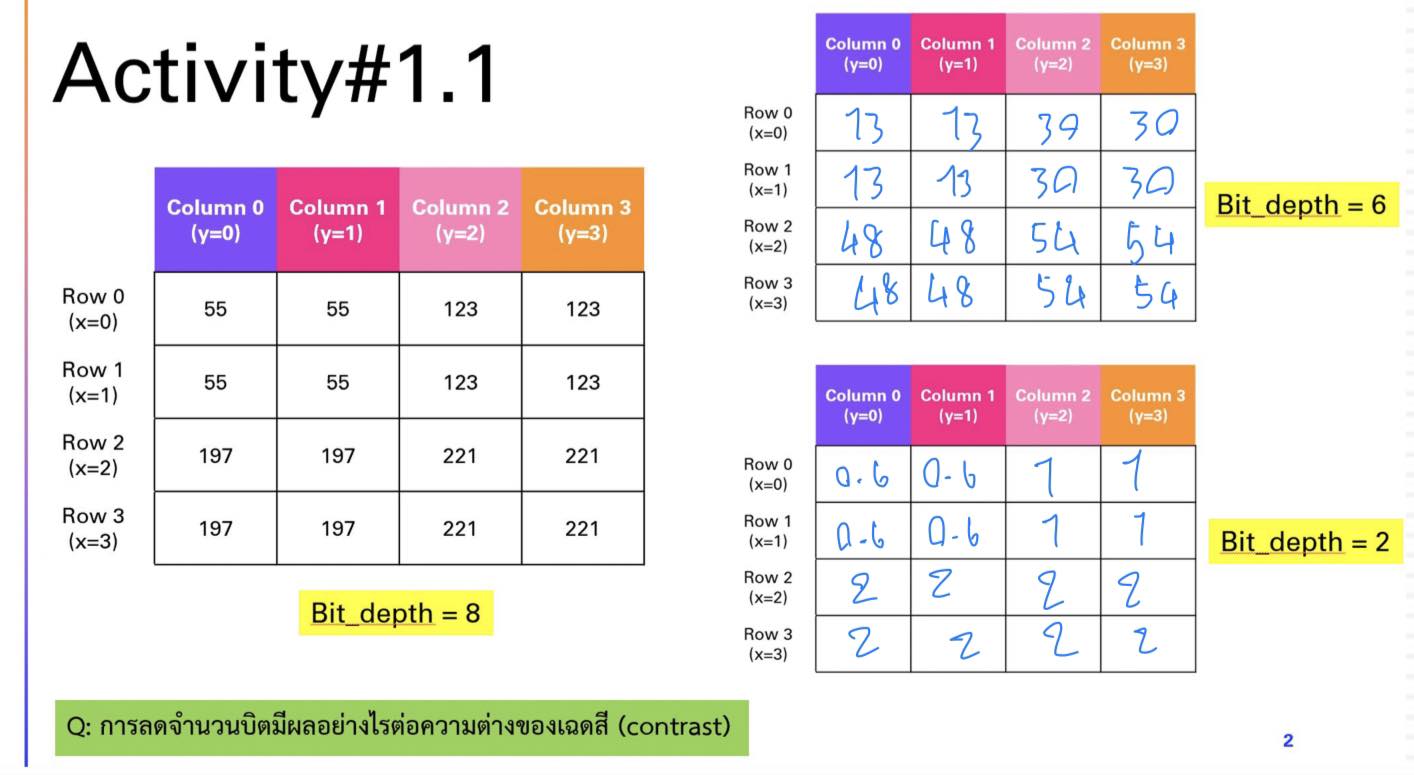 Activity#1.1
Column 0 Column 1 Column 2 Column 3
(y=0) (y=1) (y=2) (y=3)
Row 0
(x=0) 55 55 123 123
Row 1
(x=1) 55 55 123 123
Row 2
(x=2) 197 197 221 221
Row 3
(x=3) 197 197 221 221
Bit_depth = 8
Column 0 Column 1 Column 2 Column 3
(y=0) (y=1) (y=2) (y=3)
Row 0
(x=0) 13 13 30 30
Row 1
(x=1) 13 13 30 30
Row 2
(x=2) 48 48 54 54
Row 3
(x=3) 48 48 54 54
Bit_depth = 6
Column 0 Column 1 Column 2 Column 3
(y=0) (y=1) (y=2) (y=3)
Row 0
(x=0) 0.6 0.6 1 1
Row 1
(x=1) 0.6 0.6 1 1
Row 2
(x=2) 2 2 2 2
Row 3
(x=3) 2 2 2 2
Bit_depth = 2
Q: การลดจำนวนบิตมีผลอย่างไรต่อความต่างของเฉดสี (contrast)
2